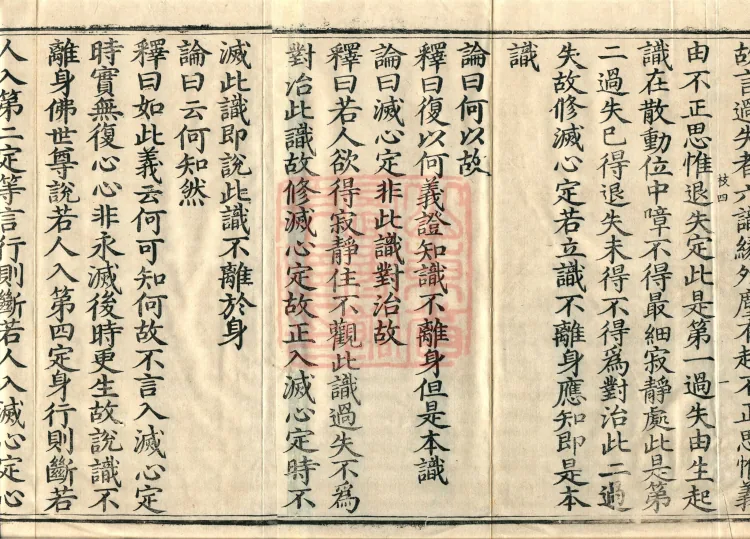 故言過失者六識緣外塵不起不正思惟義
由不正思惟退失定此是第一過失由生起
識在散動位中嶂不得最細寂靜處此是第
二過失已得退失未得不得爲對治此二過
失故修滅心定若立識不離身應知即是本
識
論曰何以故
釋曰復以何義證知識不離身但是本識
論曰滅心定非此識對治故
釋曰若人欲得寂靜住不觀此識過失不爲
對治此識故修滅心定故正入滅心定時不
滅此識即說此識不離於身
論曰云何知然
釋曰如此義云何可知何故不言入滅心定
時實無復心心非永滅後時更生故說識不
離身佛世尊說若人入第四定身行則斷若
人入第二定等言行則斷若人入滅心定心